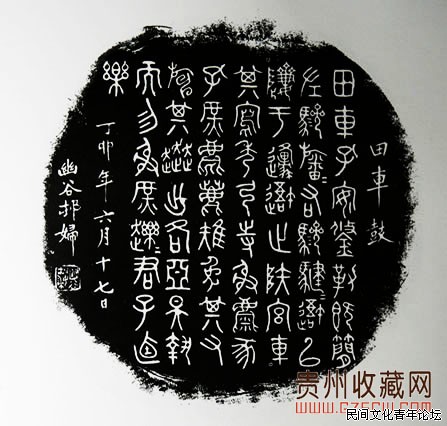 田車鼓
田車孔安鋚勒既簡
左驂旛右驂騝避以
隮于邍避止陝宮車
其寫秀弓寺射麋豕
孔庶麀鹿雉兔其又
其趩出各亞昊執
而勿射庶趚君子逌
樂
丁卯年六月十七日
幽谷邨婦
贵州收藏网
民间文化青年论坛